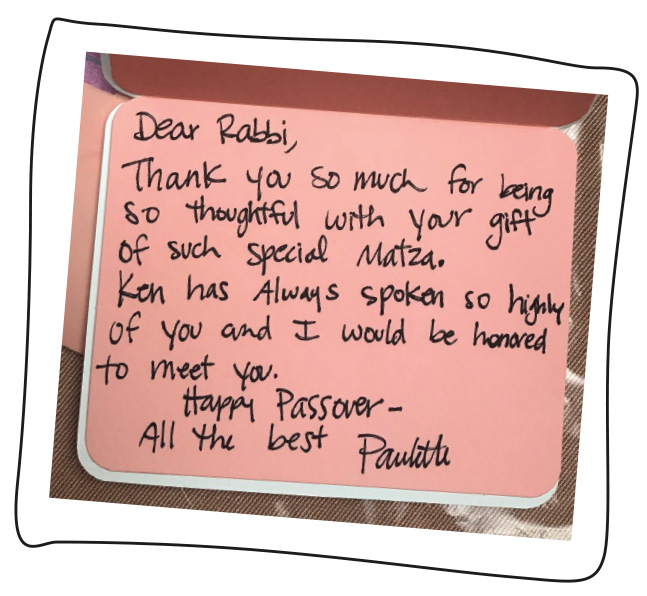 Dear Rabbi,
Thank you so much for being
so thoughtful with your gift
of such special Matza.
Ken has Always spoken so highly
of you and I would be honored
to meet you.
Happy Passover-
All the best Paulette